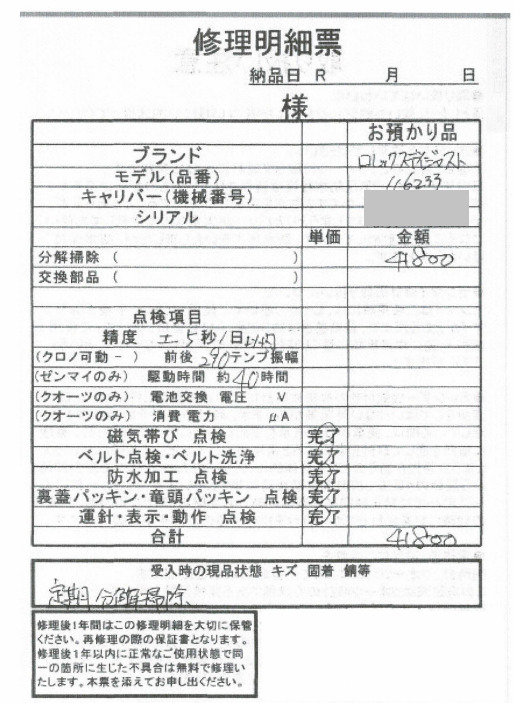 修理明細票
納品日 R 月 日
様
お預かり品
ブランド ロレックスデイジャスト
モデル(品番) 116233
キャリバー(機械番号)
シリアル
単価 金額
分解掃除 ( ) 41800
交換部品 ( )
点検項目
精度 ± 5 秒/日
(クロノ可動 - ) 前後 290 テンプ振幅
(ゼンマイのみ) 駆動時間 約 40 時間
(クオーツのみ) 電池交換 電圧 V
(クオーツのみ) 消費電力 μA
磁気帯び 点検 完了
ベルト点検・ベルト洗浄 完了
防水加工 点検 完了
裏蓋パッキン・竜頭パッキン 点検 完了
運針・表示・動作 点検 完了
合計 41800
受入時の現品状態 キズ 固着 錆等
定期分解掃除
修理後1年間はこの修理明細を大切に保管
ください。再修理の際の保証書となります。
修理後1年以内に正常なご使用状態で同
一の箇所に生じた不具合は無料で修理い
たします。本票を添えてお申し出ください。